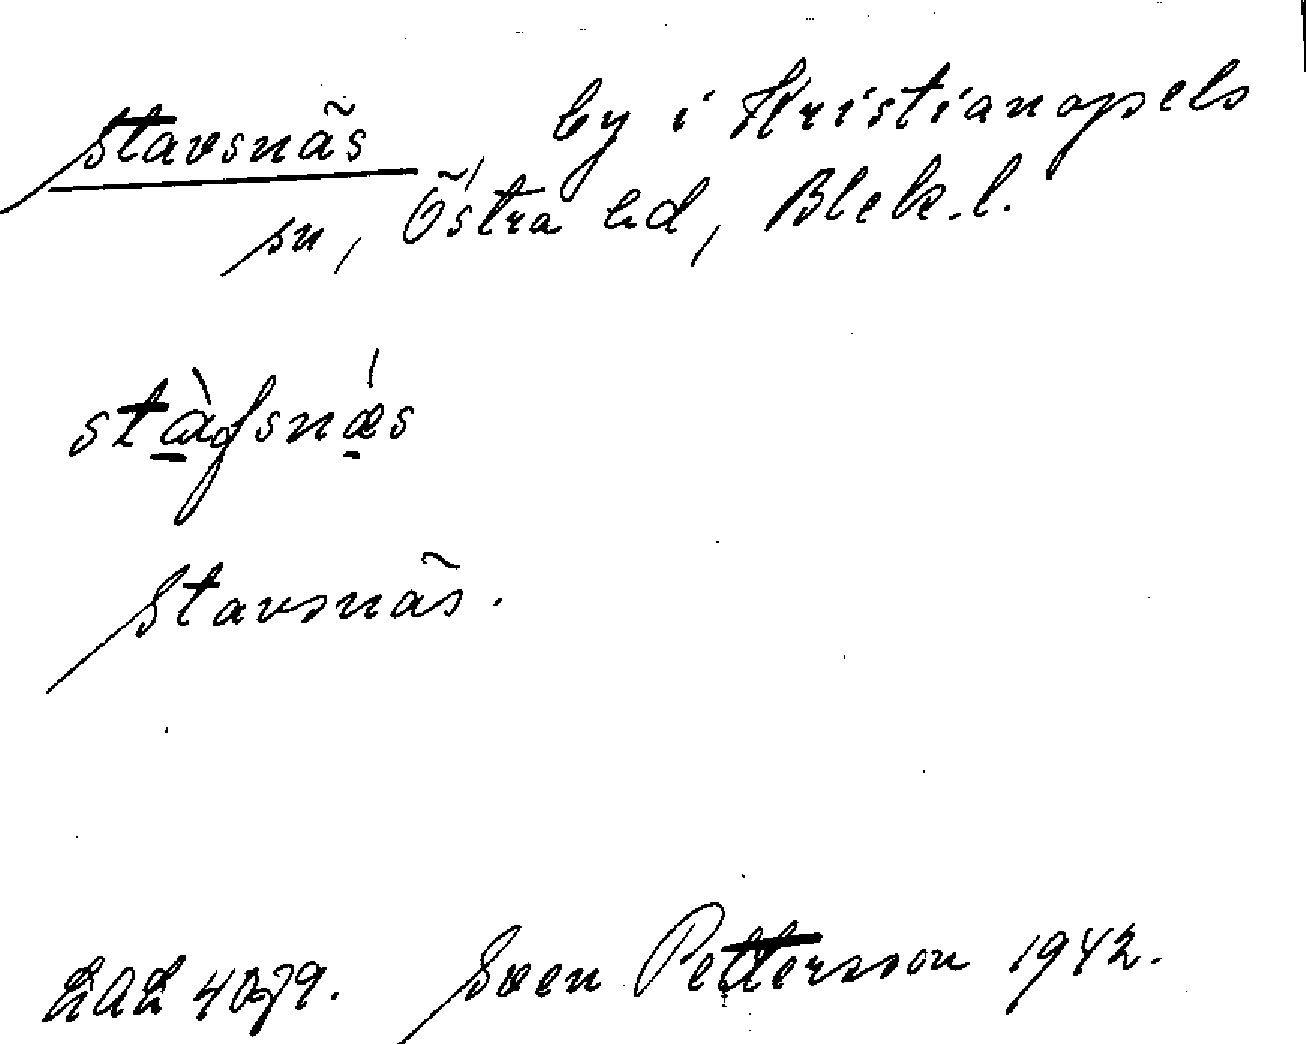 Stavsnäs by i Kristianopels
sn, Östra hd, Blek.l.
stàfsnǽs
Stavsnäs.
LAL 4079. Sven Pettersson 1942.